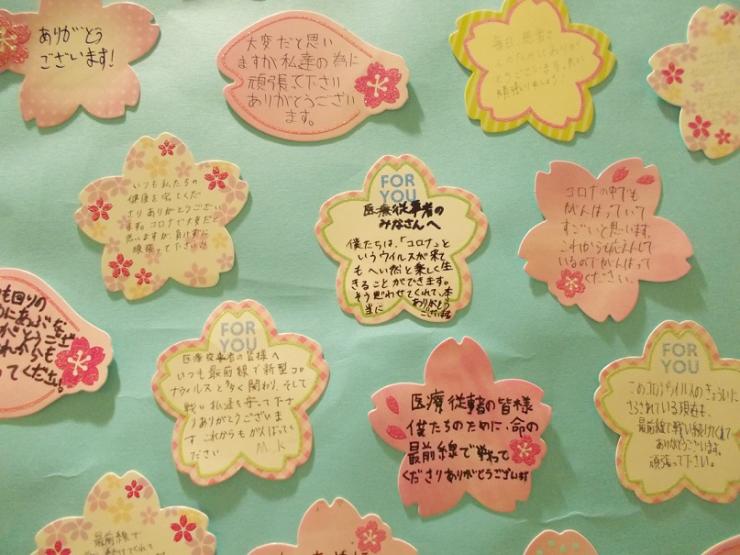 ありがとう
ございます!
大変だと思い
ますが私達の為に
頑張て下さり
ありがとうござい
ます。
毎日
いつも私たちの
健康を守てくだ
さりありがとうござい
ます。コロナで大変だと
思いますが、負けずに
頑張って下さい
FOR
YOU
医療従事者の
みなさんへ
僕たちは、「コロナ」と
いうウイルスが来て
もへい然と楽しく生
きることができます。
そう思わせてくれて、本
当に ありがとう
ございます
コロナの中でも
がんばっていて
すごいと思います。
これからもおうえんして
いるのでがんばって
ください。
も回りの
ください。
FOR
YOU
医療従事者の皆様へ
いつも最前線で新型コロ
ナウィルスと多く関わり、そして
戦い私達を守って下さ
りありがとうございま
す これからもがんばってく
ださい M.K
医療従事者の皆様
僕たちのために、命の
最前線で戦って
くださりありがとうございます
FOR
YOU
さらされている現在も、
最前線で戦い続けてくれて
ありがとうございます。
頑張って下さい。
最前線で